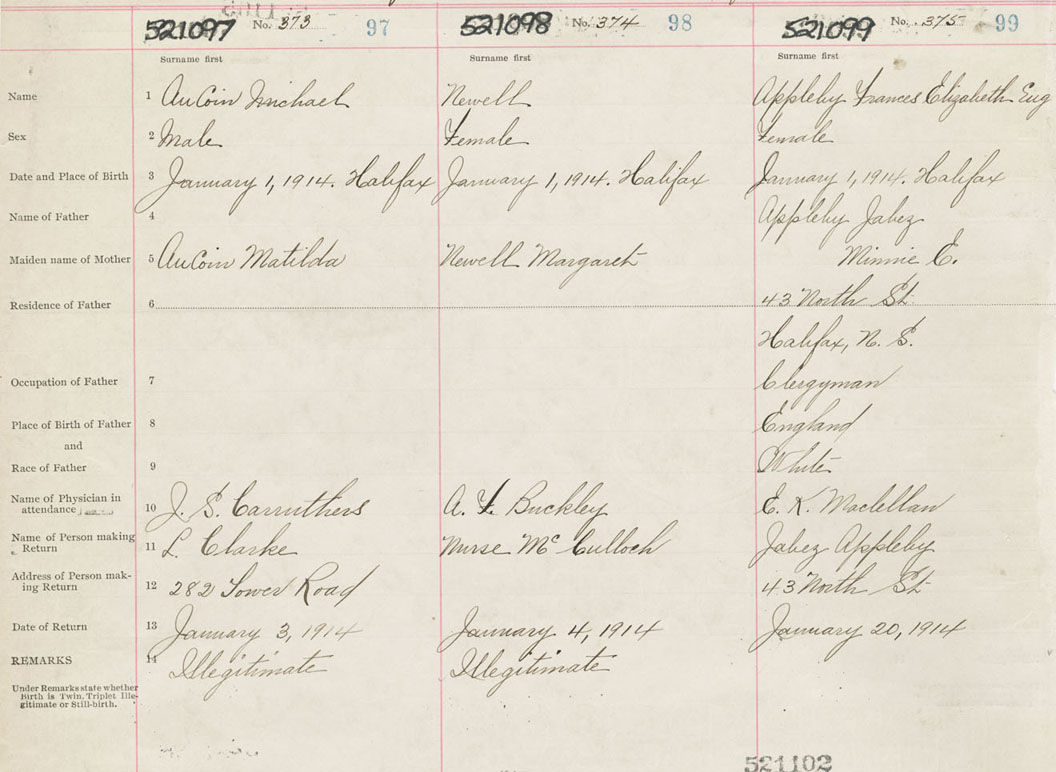 521097 No. 373 97 521098 No. 374 98 521099 No. 375 99
Surname first Surname first Surname first
Name 1 AuCoin Michael Newell Appleby Frances Elizabeth Eug
Sex 2 Male Female Female
Date and Place of Birth 3 January 1, 1914. Halifax January 1, 1914. Halifax January 1, 1914. Halifax
Name of Father 4 Appleby Jabez
Maiden name of Mother 5 AuCoin Matilda Newell Margaret Minnie E.
Residence of Father 6 43 North St.
Halifax, N. S.
Occupation of Father 7 Clergyman
Place of Birth of Father 8 England
and
Race of Father 9 White
Name of Physician in
attendance 10 J. S. Carruthers A. F. Buckley E. K. Maclellan
Name of Person making
Return 11 L. Clarke Nurse McCulloch Jabez Appleby
Address of Person mak-
ing Return 12 282 Tower Road 43 North St.
Date of Return 13 January 3, 1914 January 4, 1914 January 20, 1914
REMARKS 14 Illegitimate Illegitimate
Under Remarks state whether
Birth is Twin, Triplet Ille-
gitimate or Still-birth.
521102